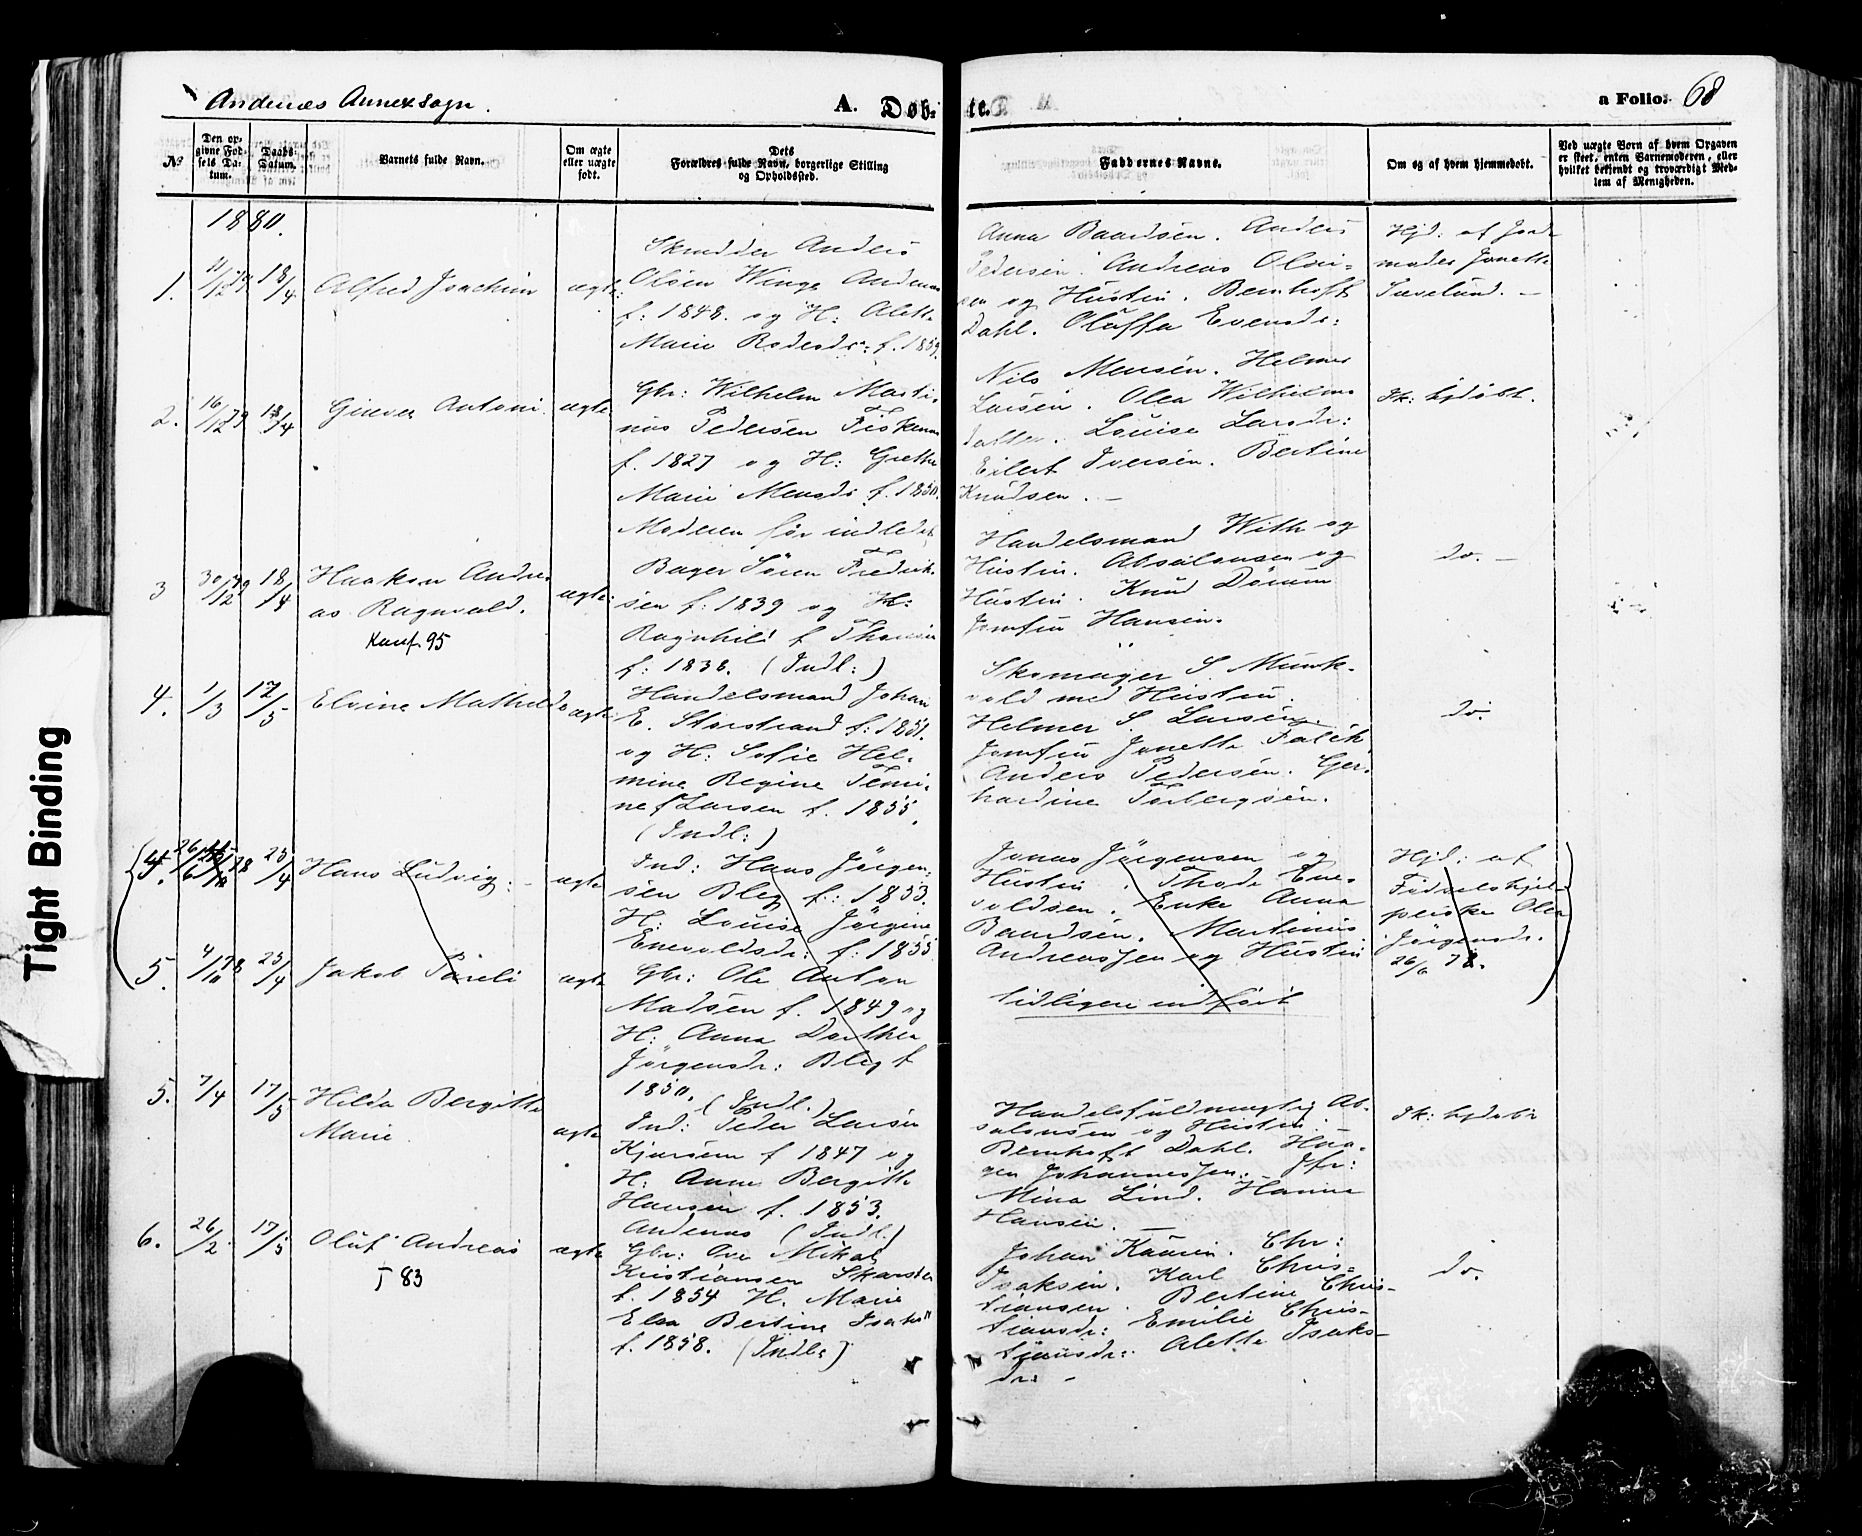 Andenæs Annexsogn.
A. Døb-
te.
a Folio. 68
№
Den op-
givne Fød-
sels Da-
tum.
Daabs-
Datum.
Barnets fulde Navn.
Om ægte
eller uægte
født.
Dets
Forældres fulde Navn, borgerlige Stilling
og Opholdssted.
Faddernes Navne.
Om og af hvem hjemmedøbt.
Ved uægte Børn af hvem Opgaven
er skeet, enten Barnemoderen, eller
hvilket bekjendt og troværdigt Med-
lem af Menigheden.
1880.
1. 11/12 79 18/4 Alfred Joachim ægte
Skrædder Anders
Olsen Winge Andenæs
f: 1848. og H: Alette
Marie f. 1859.
Anna Baardsen. Anders
Pedersen. Andreas
sen og Hustru. Bernhoft
Dahl. Oluffa Evensdr:
Hjd: af Jord-
moder Jonette
2. 16/12 79 18/4 Antoni ægte
Gbr: Wilhelm Marti-
nus Pedersen Fiskenæs
f. 1827 og H: Grethe
Marie Mensdr f. 1850.
Moderen før indledet
Nils Mensen. Helmer
Larsen. Olea Wilhelms
datter. Louise Larsdr:
Eilert Iversen. Bertine
Knudsen. –
Ik: hjdøbt.
3 30/12 79 18/4 Haakon Andre-
as Ragnvald. ægte
Konf. 95
Bager Sören Fredrik-
sen f: 1839 og H:
Ragnhild f
f: 1838. (Indl:)
Handelsmand With og
Hustru. Absalonsen og
Hustru. Knud
Jomfru Hansen.
do. –
4. 1/3 17/5 Elvine Mathilde ægte
Handelsmand Johan
E. Storstrand f: 1851.
og H: Sofie Hel-
mine Regine
ne f Larsen f. 1855.
(Indl:)
Skomager S. Munk-
vold med Hustru.
Helmer S. Larsen.
Jomfru Jonette Falck
Anders Pedersen. Ger-
hardine Torbergsen.
do.
4. 26/6 78 25/4 Hans Ludvig. – ægte
Ind: Hans Jörgen-
sen Bleg f:: 1853.
H: Louise Jörgine
Enevoldsdr: f: 1855
Jonas Jörgensen og
Hustru. Thode Ene-
voldsen. Enke Anna
Baardsen. Martinus
Andreassen og Hustru
Hjd: af
Födselshjel-
perske Olea
Jörgensdr.
26/6 78.
5. 4/10 78 25/4 Jakob Pareli ægte
Gbr: Ole Anton
Madsen f. 1849 og
H: Anna Dorthea
Jörgensdr: Bleg f
1850. (Indl.)
tidligere indfört
5. 7/4 17/5 Hilda Bergitte
Marie ægte
Ind: Peder Larsen
f 1847 og
H: Anne Bergitte
Hansen f. 1853.
Andenæs (Indl.)
Handelsfuldmægtig Ab-
salonsen og Hustru.
Bernhoft Dahl. Haa-
gen Johannessen. Jfr:
Mina Lind. Hanna
Hansen.
Ik: hjdöbt
6. 26/2 17/5 Oluf Andreas ægte
† 83
Gbr: Ove Mikal
Kristiansen
f. 1854 H. Marie
Elea Bertine
f. 1858. (Indl:)
Johan Kaaren. Chr:
Isaksen. Karl Chris-
tiansen. Bertine Chris-
tiansdr: Emilie Chris-
tiansdr: Alette Isaks-
dr: –
do.
Tight Binding